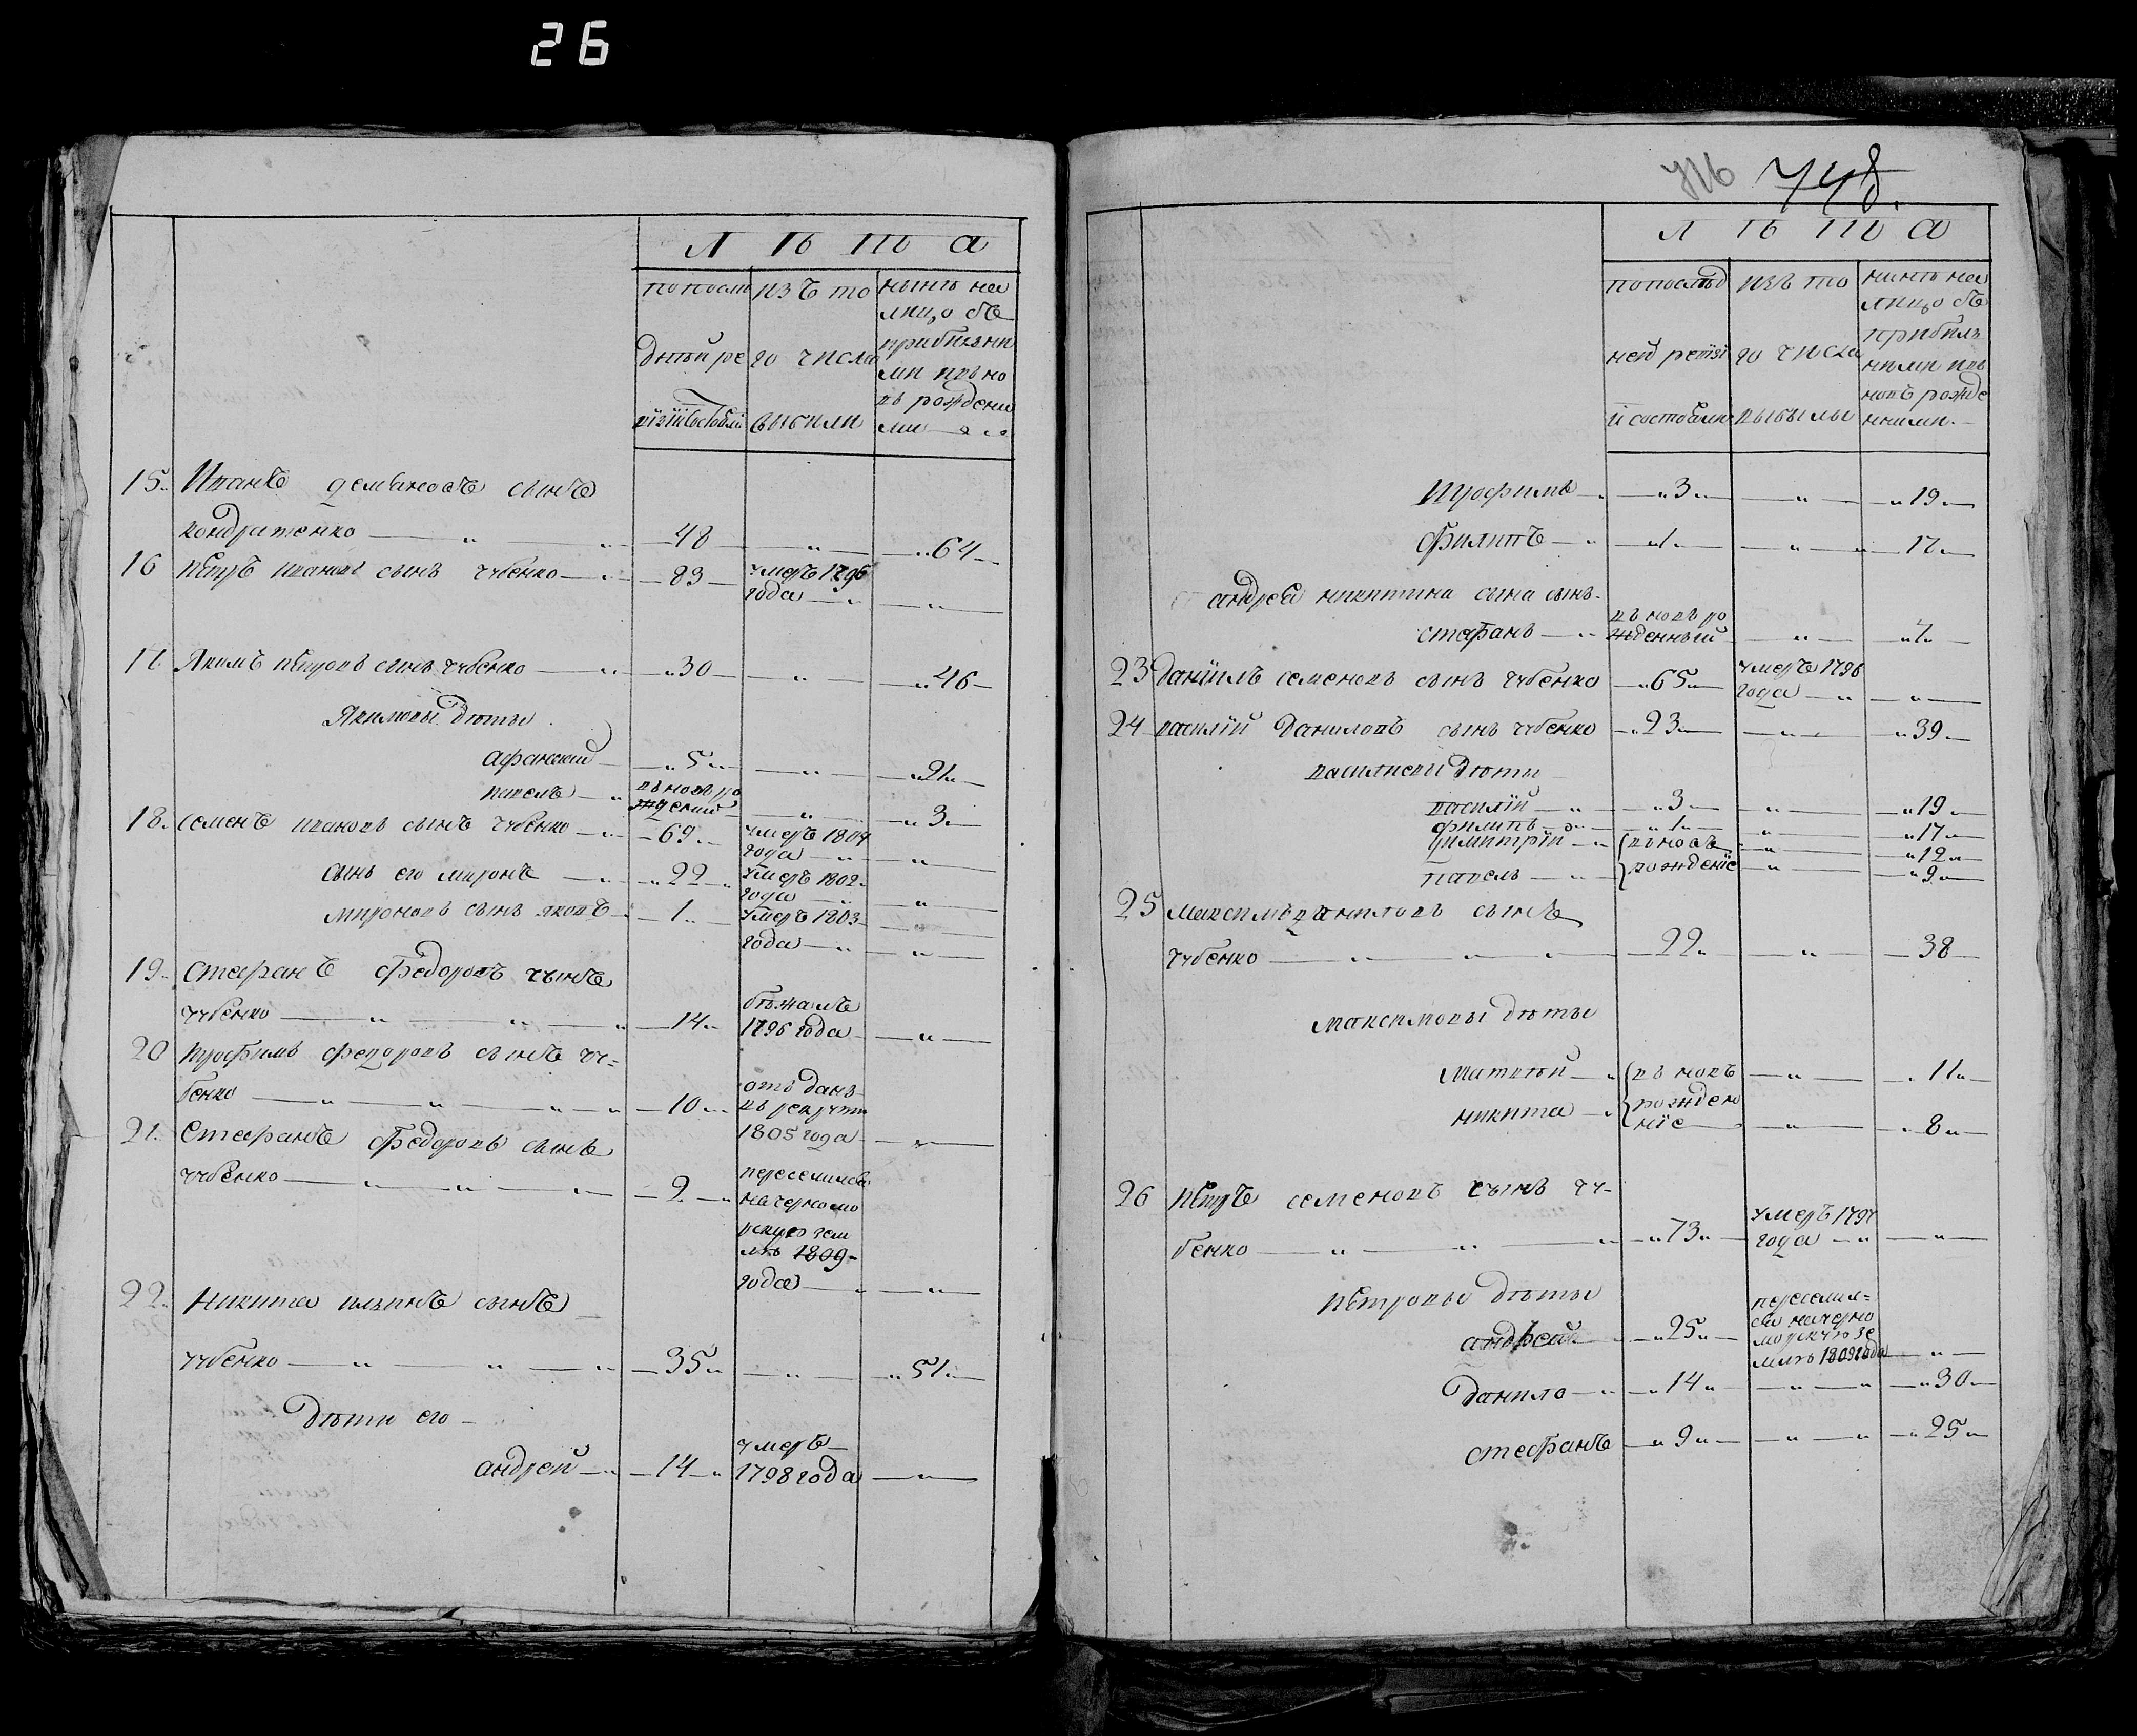 26
Л Ѣ Т А
попосле изъ то нынѣ на
лицо съ
прибылы
дньйре го числа
ми вно
въ рождены
визiисостоял выбыли ми
15. Иванъ демяновъ сынъ
кондратенко 48 „ 64
16 Петръ ивановъ сынъ чубенко 83 умеръ 1796
года „
17 Якимъ петровъ сынъ чубенко 30 „ 46
Якимовы дѣти
афанасий 5 „ 21
павелъ въ новъ ро
жденый „ 3
18. Семенъ ивановъ сынъ чубенко 69 умеръ 1804
года „
сынъ его миронъ 22 умеръ 1802
года „
мироновъ сынъ яковъ 1 умеръ 1803
года „
19. Стефанъ Федоровъ сынъ
чубенко 14 бѣжалъ
1796 года „
20 трофимъ федоровъ сынъ чу=
бенко 10 отъ данъ
въ рекруты
1805 года „
21. Стефанъ Федоровъ сынъ
чубенко 9 переселился
на черномо
рскую зем
лю 1809
года „
22. Никита ильинъ сынъ
чубенко 35 „ 51
Дѣти его
андрей 14 умеръ
1798 года „
748
Л Ѣ Т А
попослѣд изъ то нынѣ на
лицо съ
прибылы
ней ревизi го числа
ми вновъ рожде
и состояли выбылы нными
трофимъ 3 „ 19
Филипъ 1 „ 17
андрея никитина сына сынъ
стефанъ въ новъ ро
жденный „ 7
23 Данiилъ семеновъ сынъ чубенко 65 умеръ 1796
года „
24 василiй Даниловъ сынъ чубенко 23 „ 39
василиевы дѣти
василiй 3 „ 19
филипъ 1 „ 17
димитрiй въ новъ „ 12
павелъ рожденiе „ 9
25 максимъ даниловъ сынъ
чубенко 22 „ 38
максимовы дѣти
Матвѣй въ новъ „ 11
никита рожден
нiе „ 8
26 Петръ семеновъ сынъ чу-
бенко 73 умеръ 1797
года „
Петровы дѣти
андрей 25 переселил=
ся на черно
морскую зе
млю 1809 года „
Данило 14 „ 30
стефанъ 9 „ 25